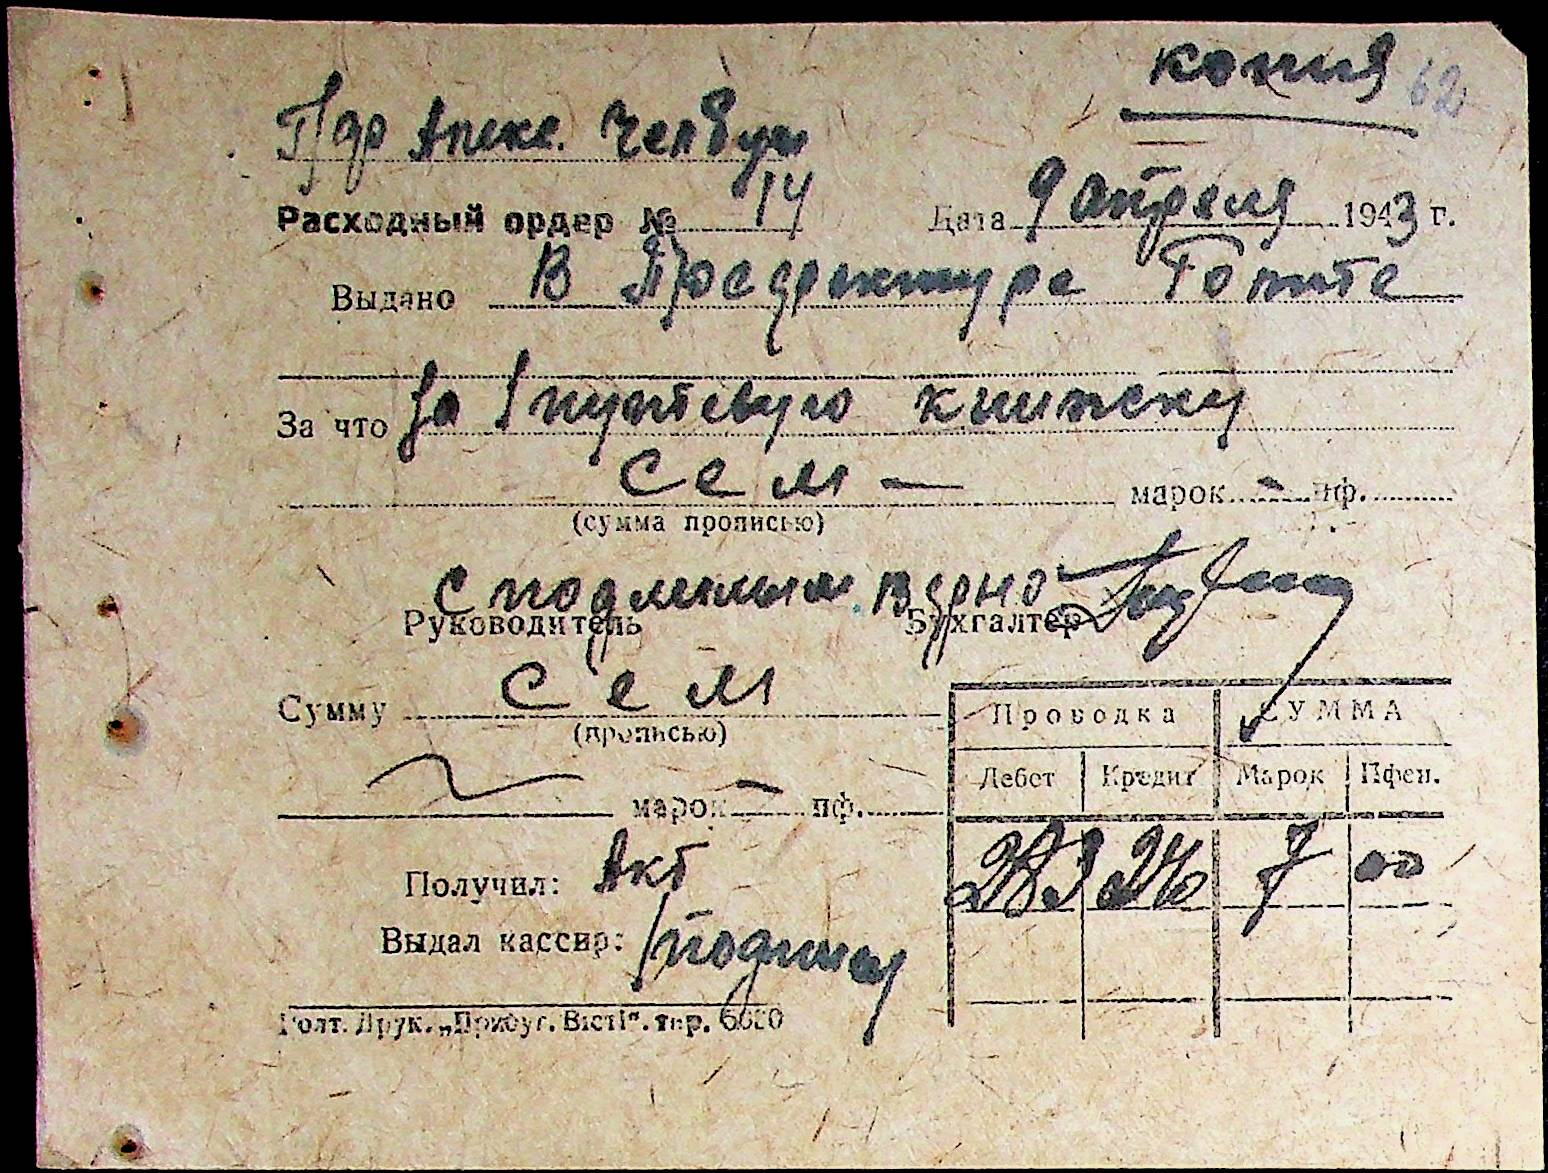 копия 62
Расходный ордер № 14 Дата 9 апреля 1943 г.
Выдано В
За что За 1 путевую книжку
сем — марок - пф.
(сумма прописью)
С подлинным верно
Руководитель Бухгалтер
Сумму сем
(прописью)
марок - пф.
Проводка СУММА
Дебет Кредит Марок Пфен.
7 00
Получил: Акт
Выдал кассир: подпись
Голт. Друк. „Прибуг. Вісті“. тир.